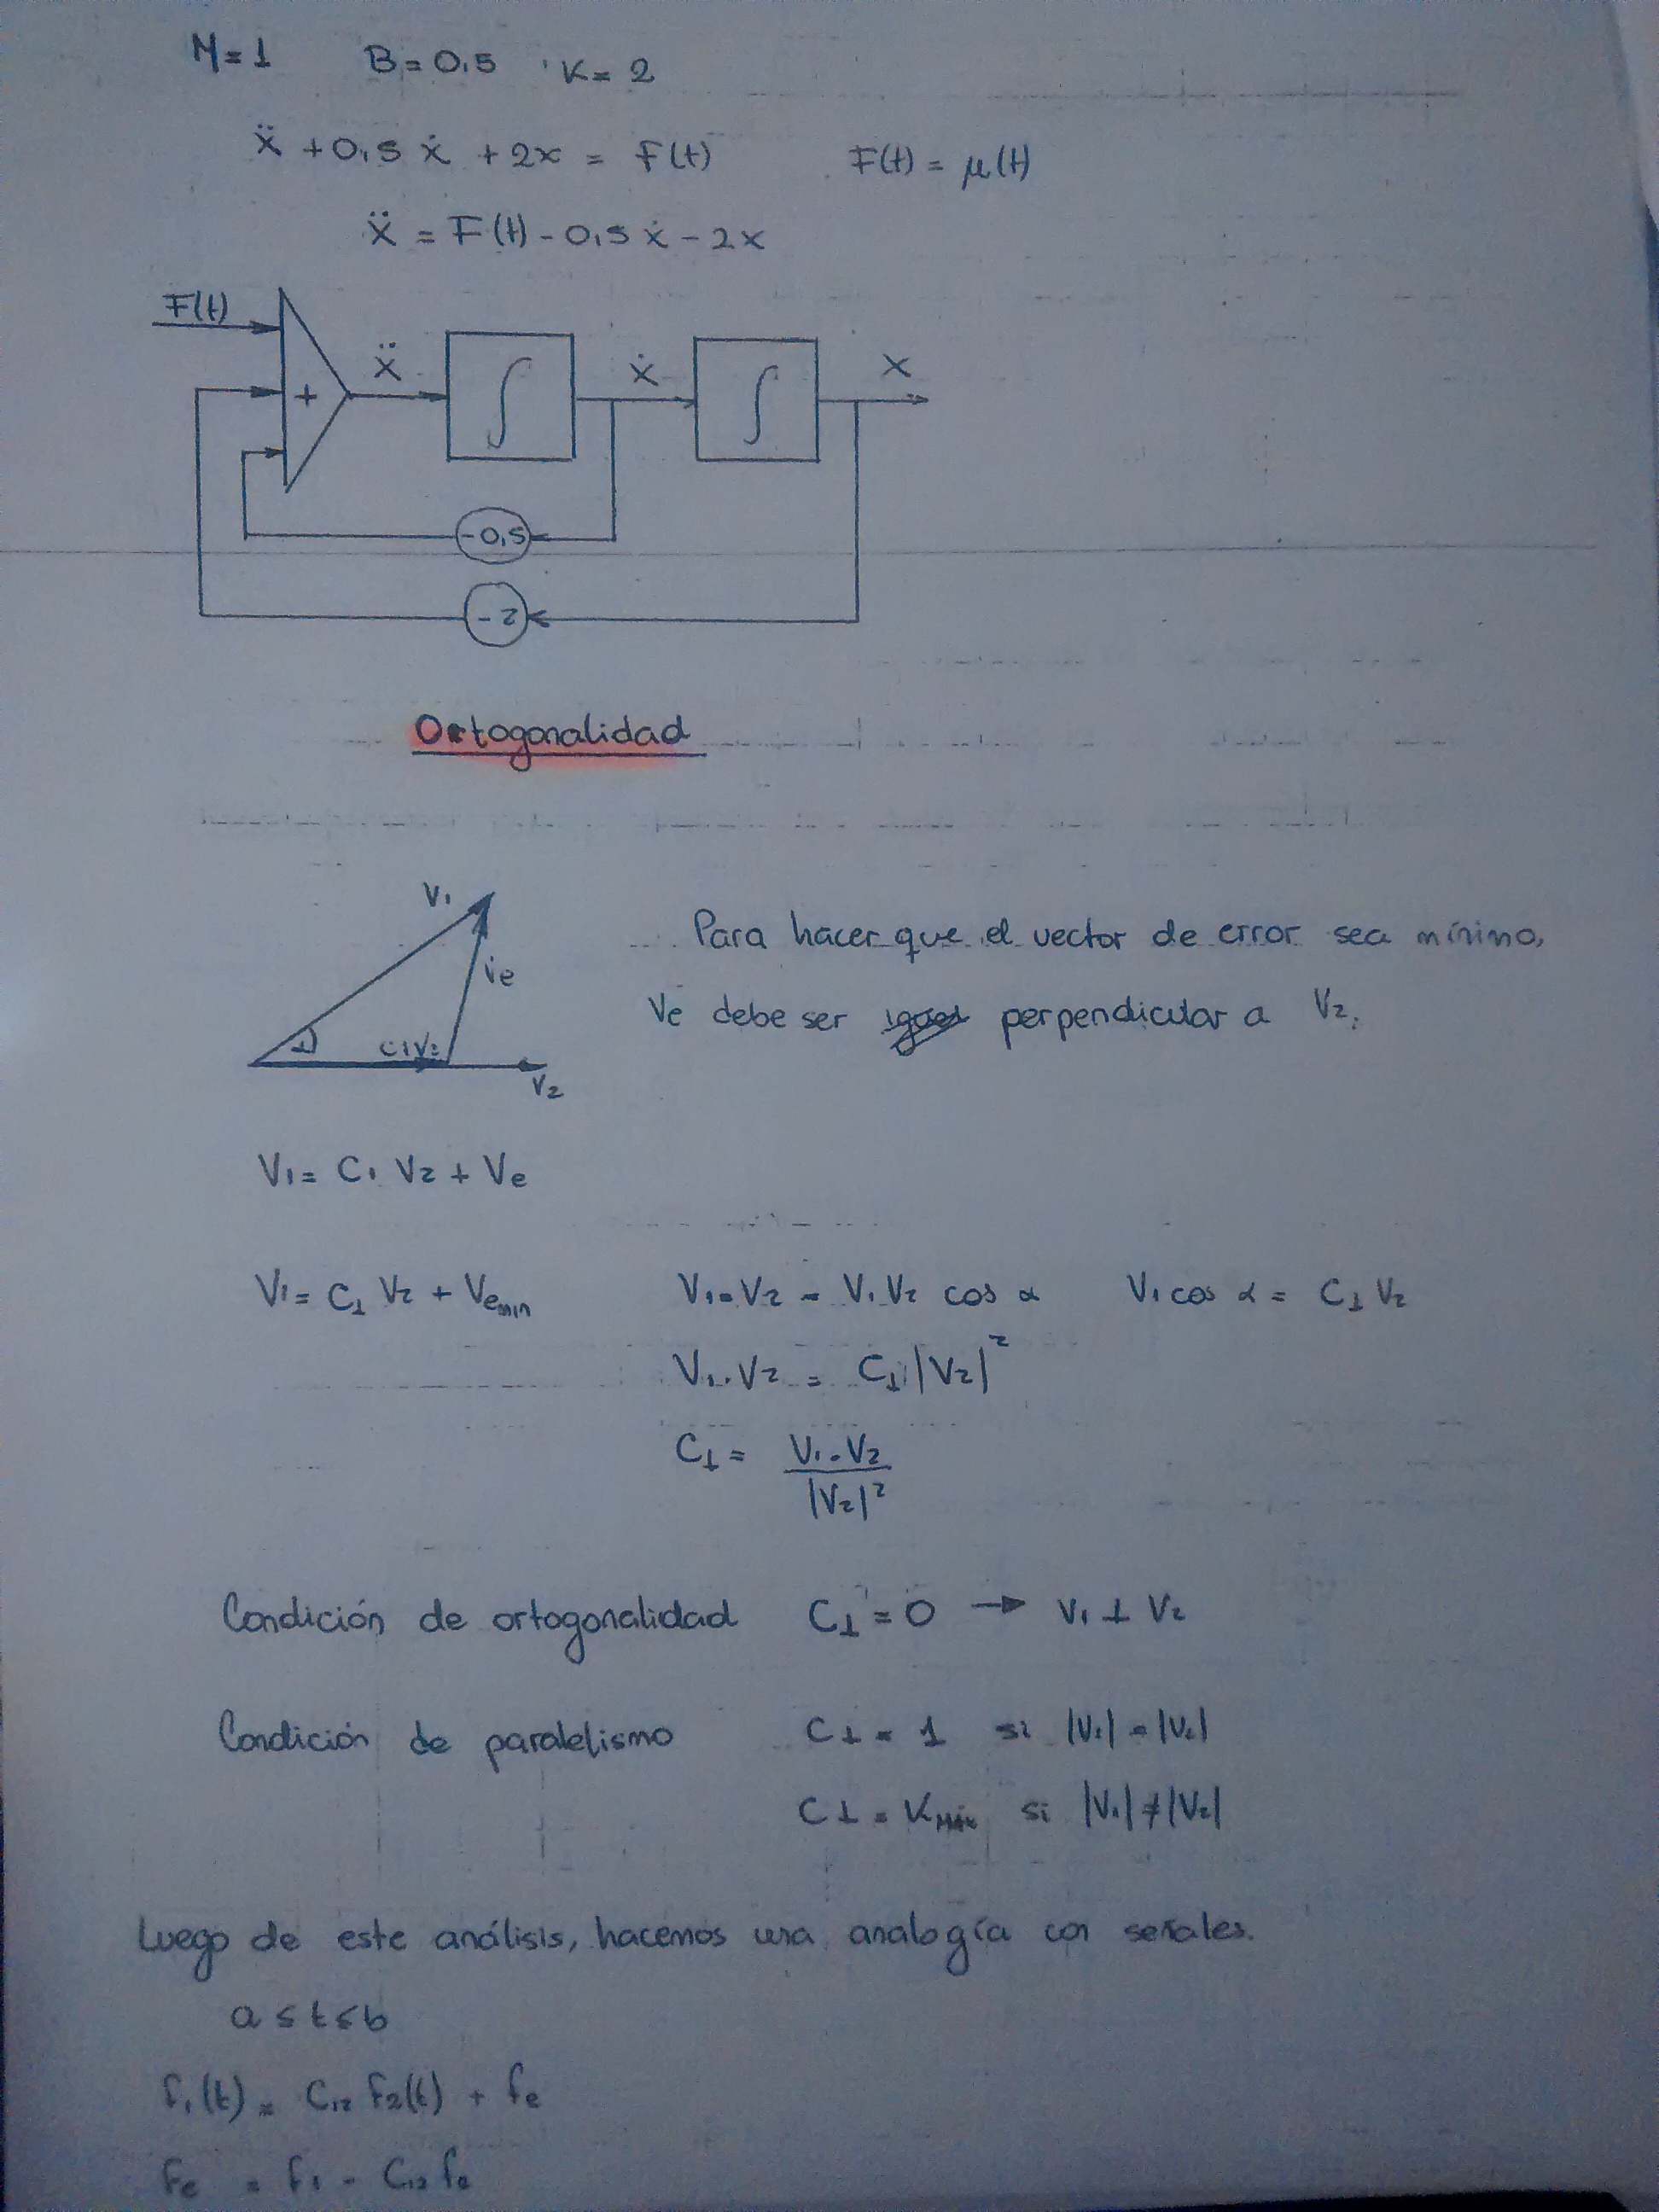 M=1 B=0,5 K=2
ẍ +0,5 ẋ +2x = F(t) F(t) = μ(t)
ẍ = F(t) -0,5 ẋ -2x
F(t) + ẍ ∫ ẋ ∫ x
-0,5
-2
Ortogonalidad
V1
Ve
C1V2
V2
Para hacer que el vector de error sea mínimo,
Ve debe ser perpendicular a V2.
V1= C1 V2 + Ve
V1= C⊥ V2 + Ve min V1·V2 = V1 V2 cos α V1 cos α = C⊥ V2
V1·V2 = C⊥ |V2|²
C⊥ = V1·V2
|V2|²
Condición de ortogonalidad C⊥ = 0 → V1 ⊥ V2
Condición de paralelismo C⊥ = 1 si |V1| = |V2|
C⊥ = K Máx si |V1| ≠ |V2|
Luego de este análisis, hacemos una analogía con señales.
a ≤ t ≤ b
f1(t) = C12 f2(t) + fe
fe = f1 - C12 f2